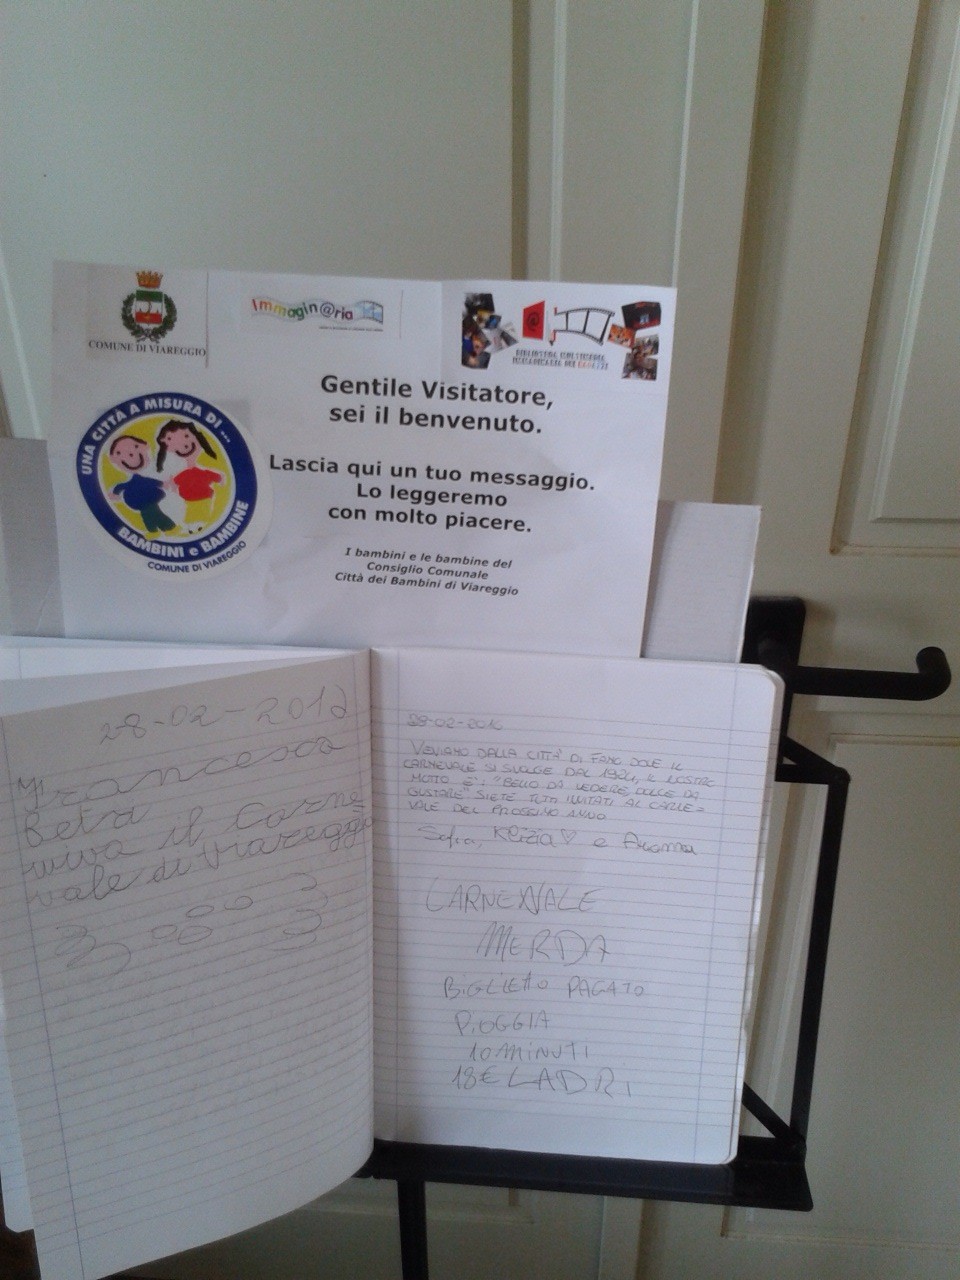 COMUNE DI VIAREGGIO
Immagin@ria
Gentile Visitatore,
sei il benvenuto.
Lascia qui un tuo messaggio.
Lo leggeremo
con molto piacere.
I bambini e le bambine del
Consiglio Comunale
Città dei Bambini di Viareggio
UNA CITTÀ A MISURA DI...
BAMBINI e BAMBINE
COMUNE DI VIAREGGIO
28-02-2012
Francesca
Beta
viva il Carne
vale di Viareggi
28-02-2016
VENIAMO DALLA CITTÀ DI FANO DOVE IL
CARNEVALE SI SVOLGE DAL 1924, IL NOSTRO
MOTTO È: "BELLO DA VEDERE, DOLCE DA
GUSTARE" SIETE TUTTI INVITATI AL CARNE=
VALE DEL PROSSIMO ANNO
Sofia, Keizia ♡ e
CARNEVALE
MERDA
BIGLIETTO PAGATO
PIOGGIA
10 MINUTI
18€ LADRI